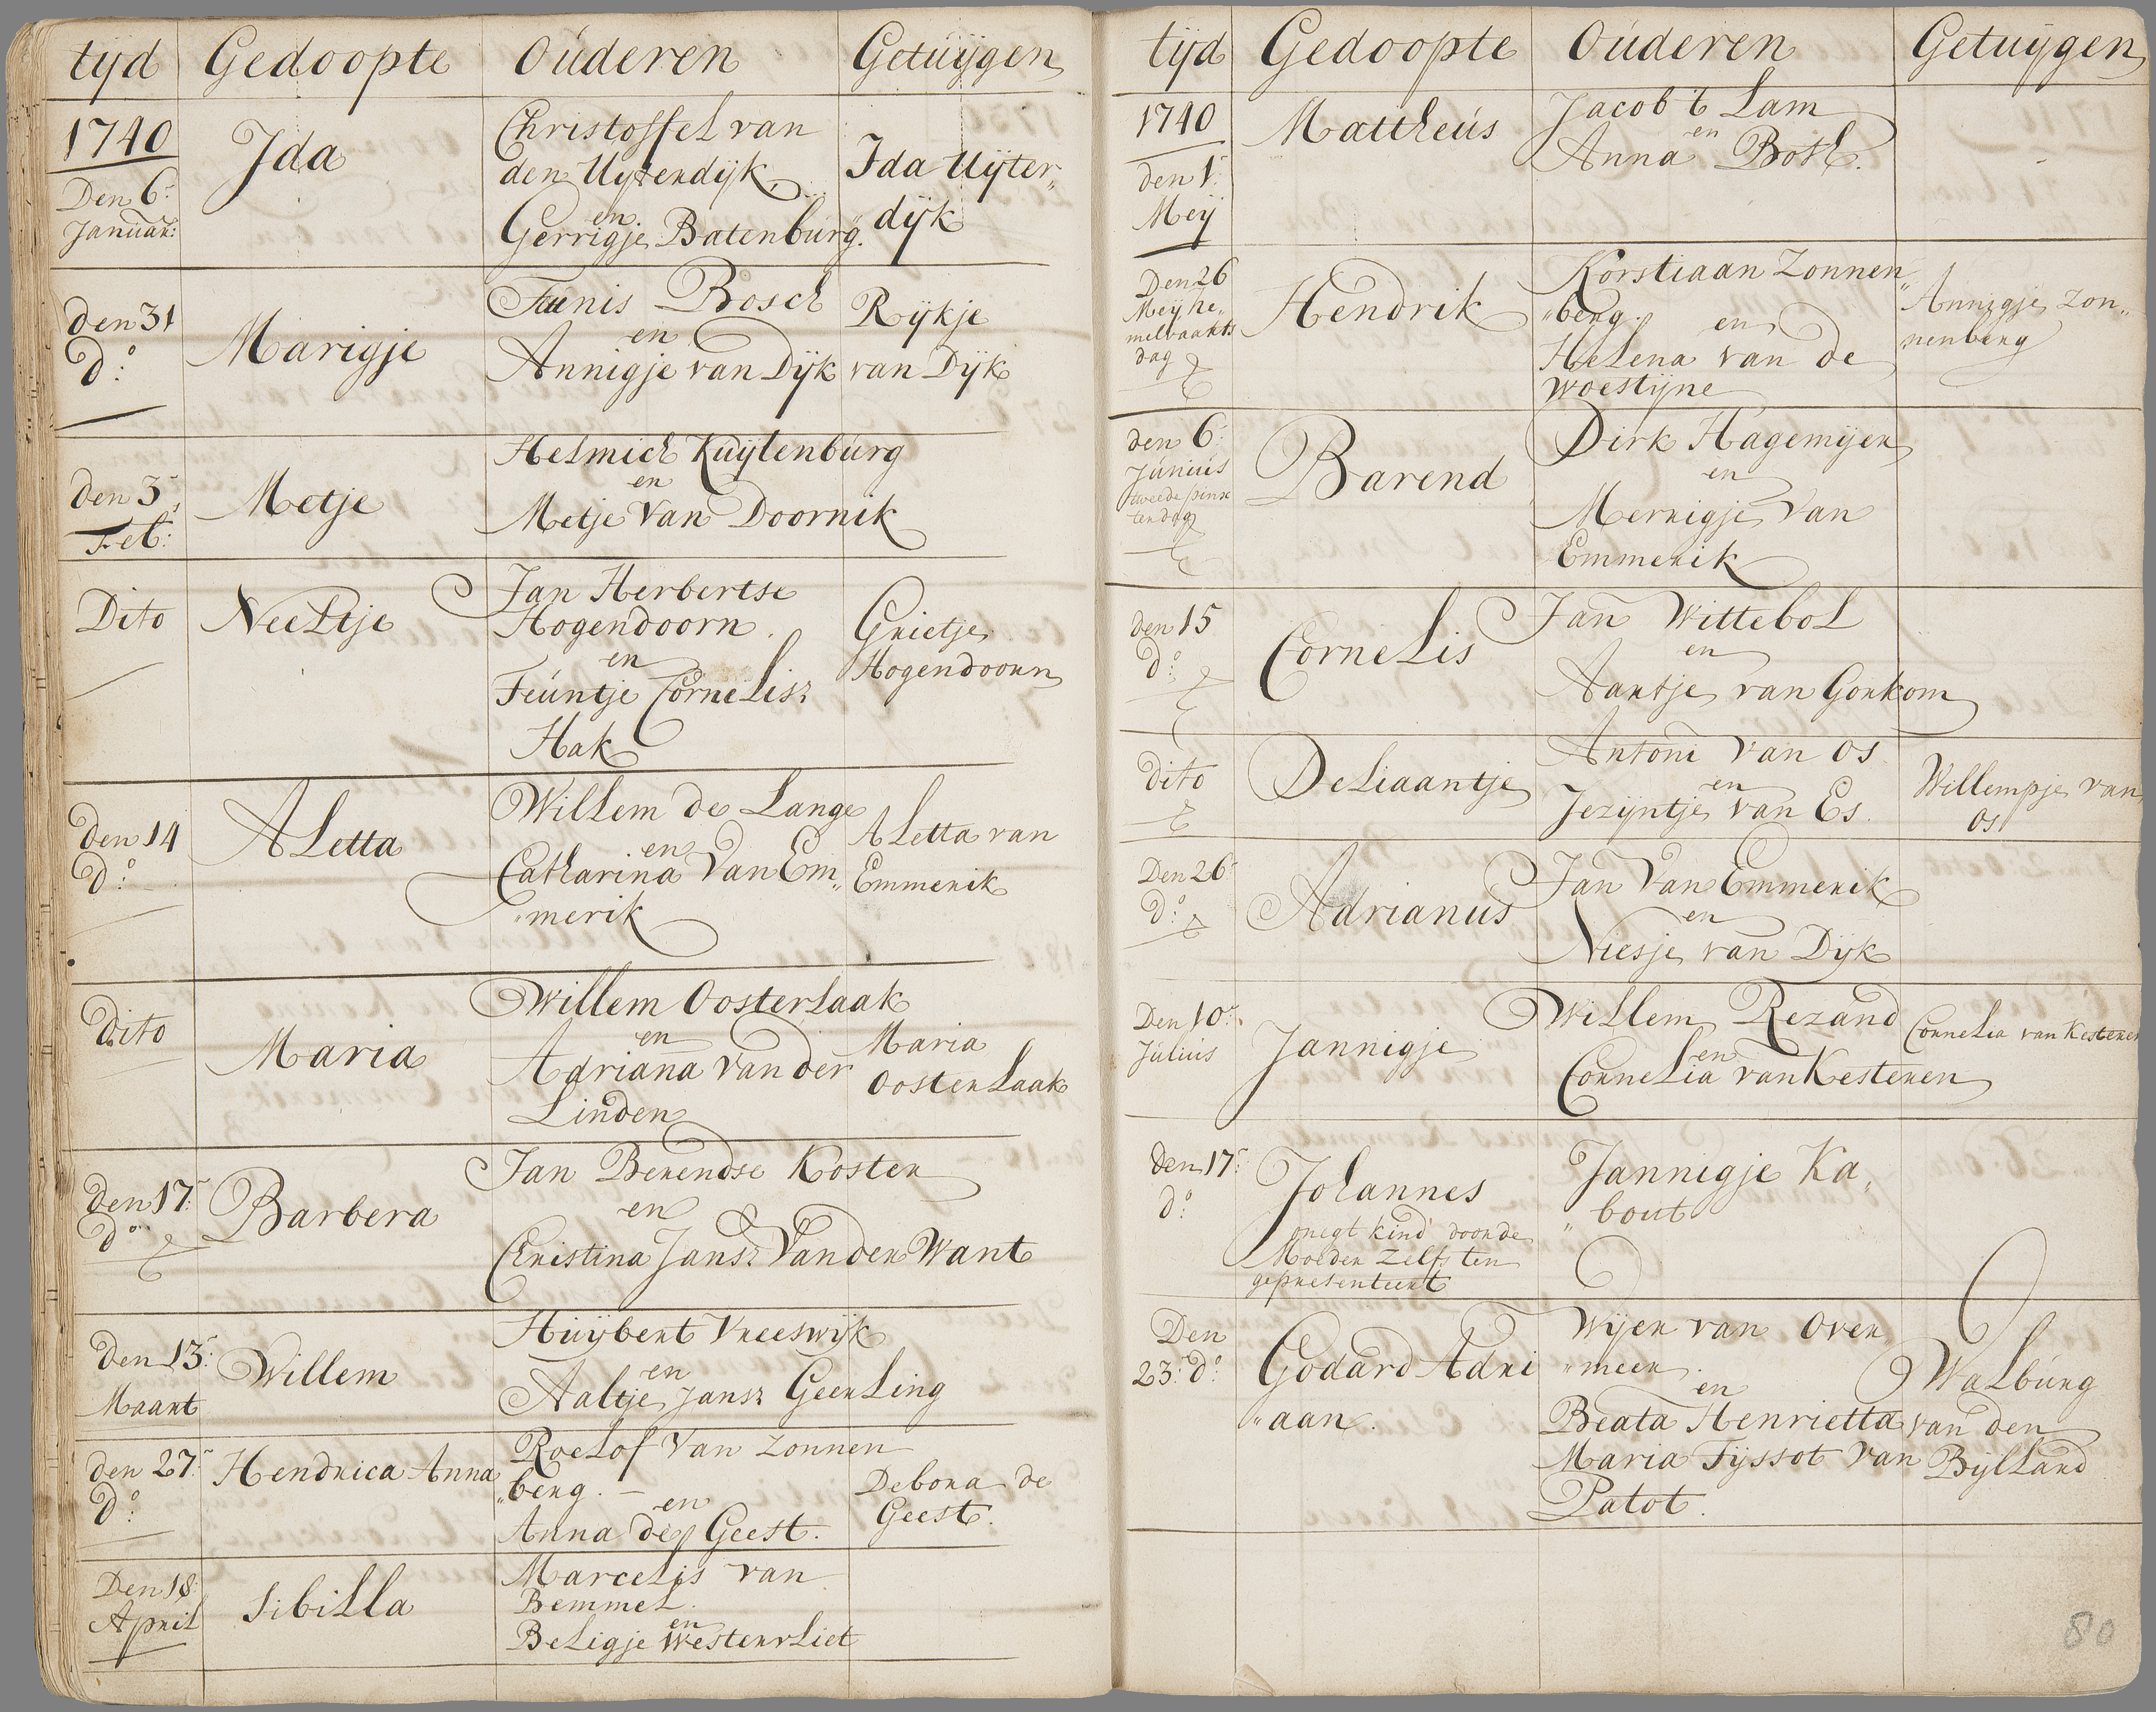 tijd Gedoopte Oúderen Getuijgen
1740
Den 6:
Januar:
Ida
Christoffel van
den Uijtendijk,
en
Gerrigje Batenburg.
Ida Uijter„
dijk
den 31
do:
Marigje
Teunis Bosch
en
Annigje van Dijk
Rijkje
van Dijk
den 3
Feb:
Metje
Helmich Kuijlenburg
en
Metje Van Doornik
Dito
Neeltje
Jan Herbertse
Hogendoorn.
en
Teuntje Cornelisz
Hak
Grietje
Hogendoorn
den 14
do:
Aletta
Willem de Lange
en
Catharina Van Em„
„merik
Aletta van
Emmerik
Dito
Maria
Willem Oosterlaak
en
Adriana van der
Linden
Maria
Oosterlaak
den 17:
do:
Barbera
Jan Berendse Koster
en
Christina Jansz Van der Want
den 13:
Maart
Willem
Huijbert Vreeswijk
en
Aaltje Jansz Geerling
den 27:
do:
Hendrica Anna
Roelof Van Zonnen
„berg. –
en
Anna de Geest.
Debora de
Geest.
Den 18:
April
Sibilla
Marcelis van
Bemmel.
en
Beligje Westervliet
tijd Gedoopte Ouderen Getuijgen
1740
den 1:
Meij
Mattheús
Jacob 't Lam
en
Anna Bosch.
Den 26
Meij he„
melvaarts
dag
Hendrik
Korstiaan Zonnen„
„berg.
en
Helena van de
Woestijne
Annigje Zon„
nenberg
den 6:
Júniús
tweede pinx
terdag
Barend
Dirk Hagemijer
en
Merrigje Van
Emmerik
den 15
do:
Cornelis
Jan Wittebol
en
Aartje van Gorkom
dito
Deliaantje
Antoni van Os
en
Jezijntje van Es.
Willempje van
Os
Den 26
do:
Adrianus
Jan Van Emmerik
en
Niesje van Dijk
Den 10:
Július
Jannigje
Willem Rezand
en
Cornelia van Kesteren
Cornelia van Kesteren
den 17:
do:
Johannes
onegt kind door de
Moeder zelfs ten
gepresenteert
Jannigje Ka„
„bout
Den
23: do:
Godard Adri
„aan.
Wijer van Over
„meer.
en
Beata Henrietta
Maria Tijssot Van
Patot.
Walburg
van den
Bijlland
80